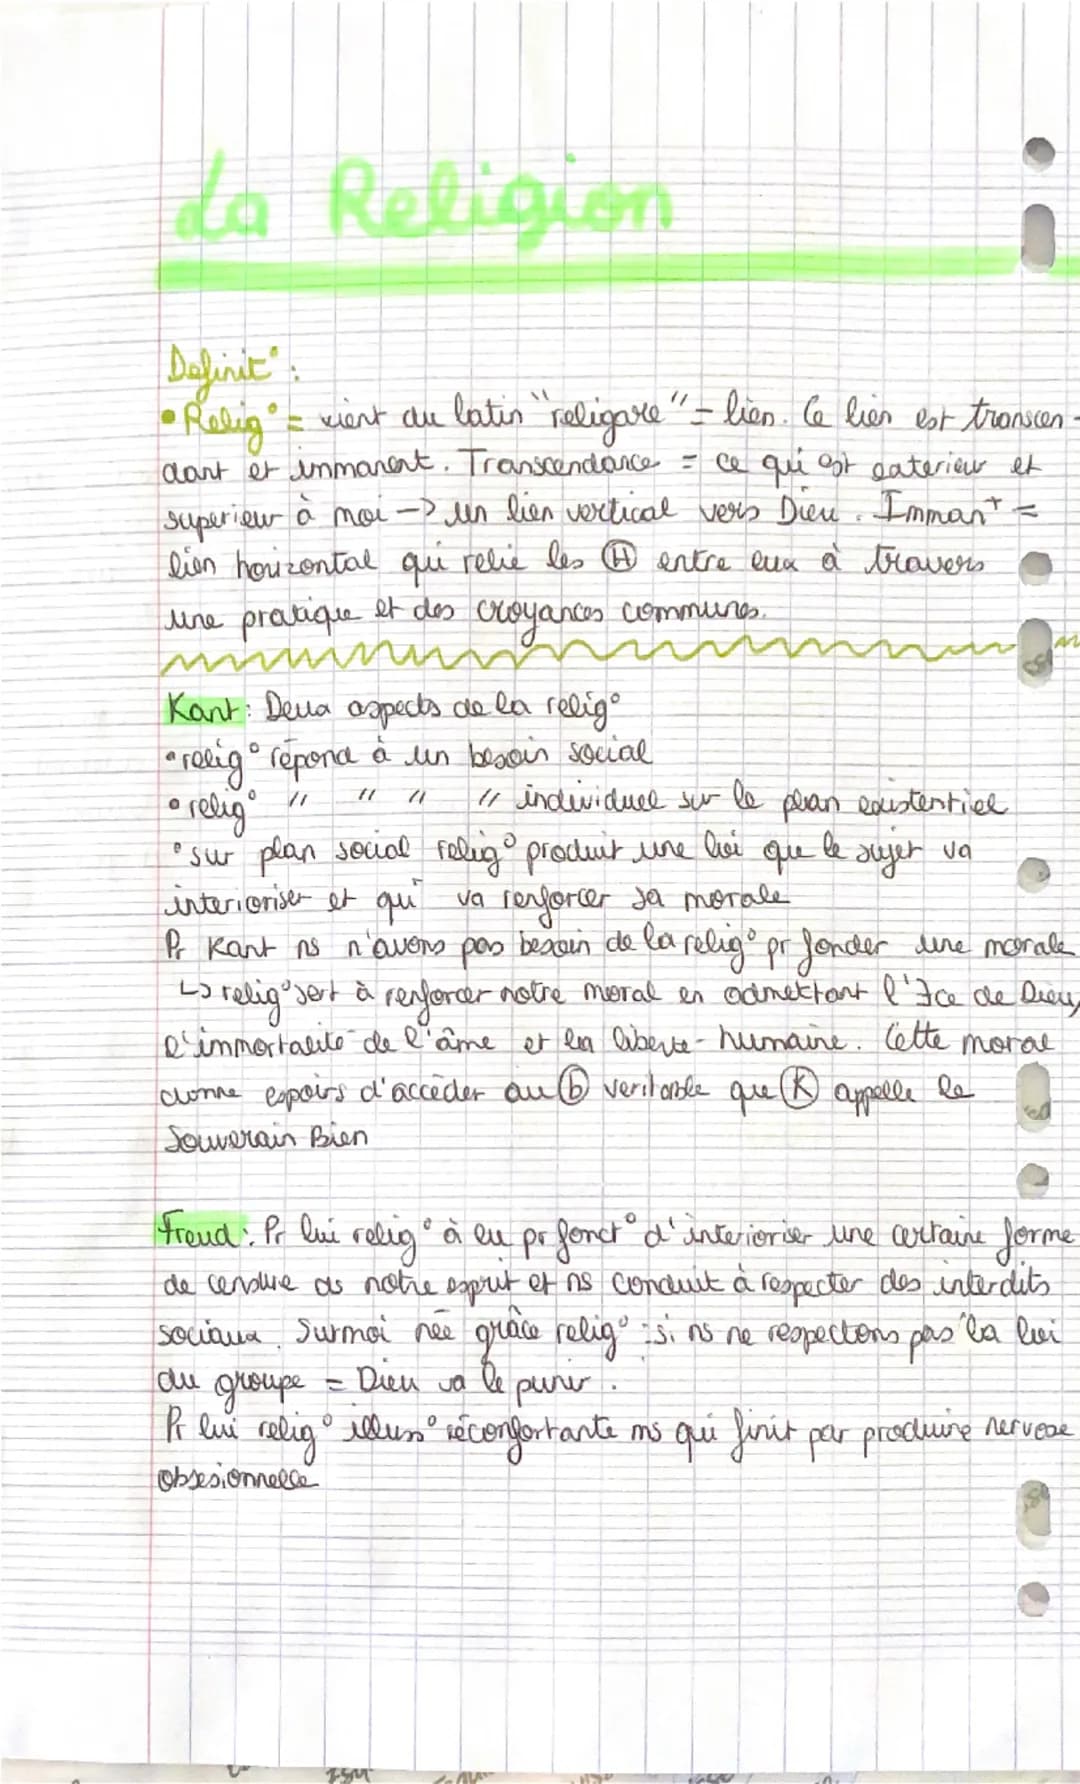 La Religion
Definit° :
• Relig° = vient du latin "religare" = lien. Ce lien est transcen-
dant et immanent. Transcendance = ce qui est exterieur et
superieur à moi -> un lien vertical vers Dieu. Imman+ =
lien horizontal qui relie les (H) entre eux à travers
une pratique et des croyances communes.
Kant : Deux aspects de la relig°
• relig° répond à un besoin social
• relig° " " " " individuel sur le plan existentiel
• sur plan social relig° produit une loi que le sujet va
interioriser et qui va renforcer sa morale
Pr Kant ns n'avons pas besoin de la relig° pr fonder une morale
↳ relig° sert à renforcer notre moral en admettant l'∃ce de Dieu,
l'immortalité de l'âme et la liberte humaine. Cette moral
donne espoirs d'accèder au (b) veritable que (K) appelle le
Souverain Bien
Freud : Pr lui relig° à eu pr fonct° d'interioriser une certaine forme
de censure ds notre esprit et ns conduit à respecter des interdits
sociaux. Surmoi née grâce relig° : si ns ne respectons pas la loi
du groupe = Dieu va le punir.
Pr lui relig° illus° réconfortante ms qui finit par produire nervose
obsesionnelle